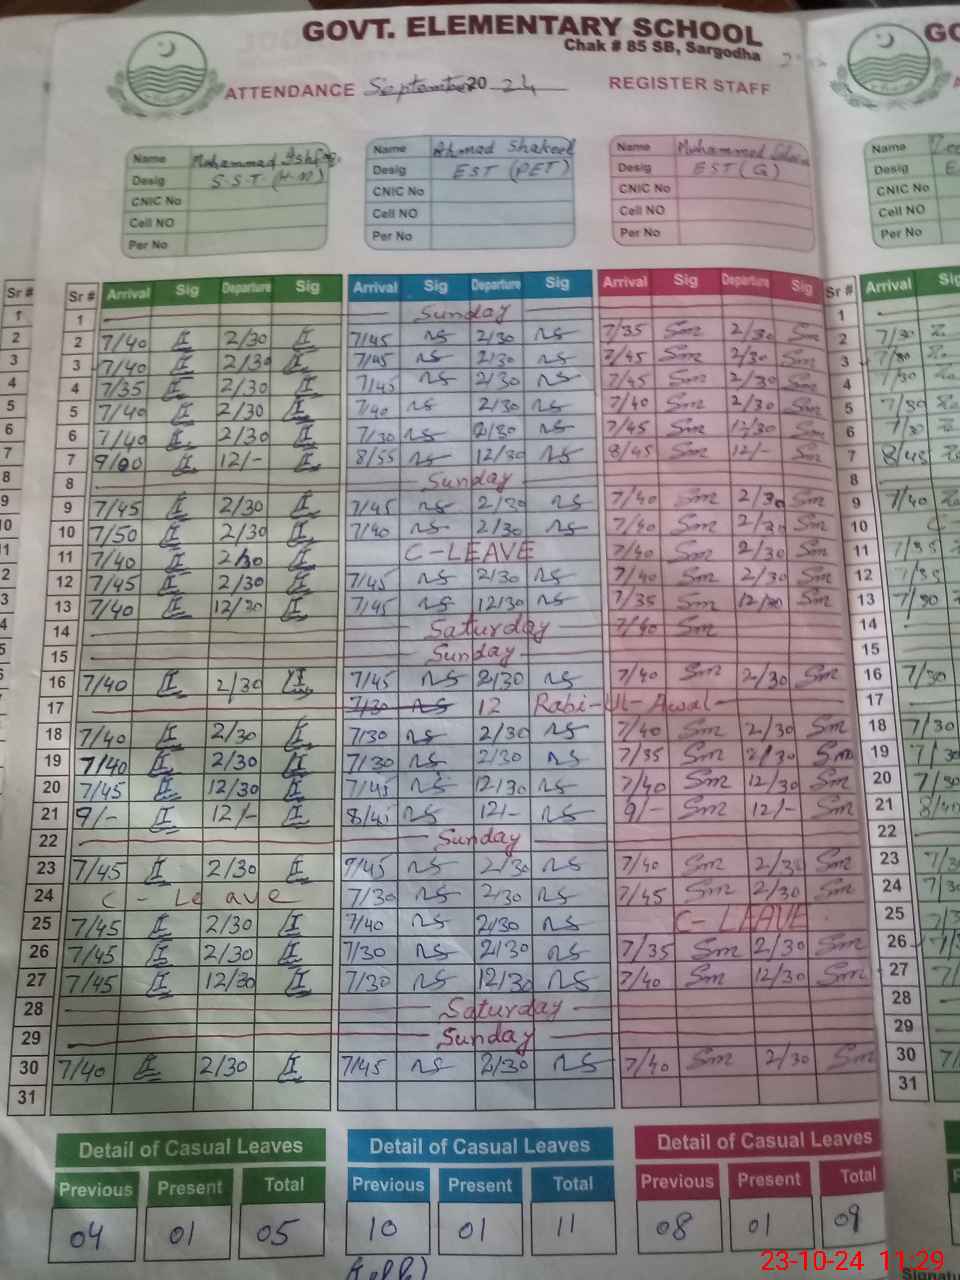 GOVT. ELEMENTARY SCHOOL
Chak # 85 SB, Sargodha
ATTENDANCE September 2024 REGISTER STAFF
Name Mohammad Desig S.S.T CNIC No Cell NO Per No
Name Ahmad Shakeel Desig EST (PET) CNIC No Cell NO Per No
Name Muhammad Desig EST (G) CNIC No Cell NO Per No
Name Desig CNIC No Cell NO Per No
Sr # Sr # Arrival Sig Departure Sig Arrival Sig Departure Sig Arrival Sig Departure Sig Sr # Arrival Sig
1 1 Sunday 1
2 2 7/40 I 2/30 I 7/45 ns 2/30 ns 7/35 Sm 2/30 Sm 2 7/30
3 3 7/40 I 2/30 I 7/45 ns 2/30 ns 7/45 Sm 2/30 Sm 3 7/30
4 4 7/35 I 2/30 I 7/45 ns 2/30 ns 7/45 Sm 2/30 Sm 4 7/30
5 5 7/40 I 2/30 I 7/40 ns 2/30 ns 7/40 Sm 2/30 Sm 5 7/30
6 6 7/40 I 2/30 I 7/30 ns 2/30 ns 7/45 Sm 12/30 Sm 6 7/30
7 7 9/00 I 12/- I 8/55 ns 12/30 ns 8/45 Sm 12/- Sm 7 8/45
8 8 Sunday 8
9 9 7/45 I 2/30 I 7/45 ns 2/30 ns 7/40 Sm 2/30 Sm 9 7/40
10 10 7/50 I 2/30 I 7/40 ns 2/30 ns 7/40 Sm 2/30 Sm 10 C-
11 11 7/40 I 2/30 I C-LEAVE 7/40 Sm 2/30 Sm 11 7/35
12 12 7/45 I 2/30 I 7/45 ns 2/30 ns 7/40 Sm 2/30 Sm 12 7/35
13 13 7/40 I 12/30 I 7/45 ns 12/30 ns 7/35 Sm 12/30 Sm 13 7/30
14 Saturday 7/40 Sm 14
15 Sunday 15
16 7/40 I 2/30 I 7/45 ns 2/30 ns 7/40 Sm 2/30 Sm 16 7/30
17 7/30 ns 12 Rabi-Ul-Awal 17
18 7/40 I 2/30 I 7/30 ns 2/30 ns 7/40 Sm 2/30 Sm 18 7/30
19 7/40 I 2/30 I 7/30 ns 2/30 ns 7/35 Sm 2/30 Sm 19 7/30
20 7/45 I 12/30 I 7/45 ns 12/30 ns 7/40 Sm 12/30 Sm 20 7/30
21 9/- I 12/- I 8/45 ns 12/- ns 9/- Sm 12/- Sm 21 8/40
22 Sunday 22
23 7/45 I 2/30 I 9/45 ns 2/30 ns 7/40 Sm 2/30 Sm 23 7/30
24 C - Leave 7/30 ns 2/30 ns 7/45 Sm 2/30 Sm 24 7/30
25 7/45 I 2/30 I 7/40 ns 2/30 ns C-LEAVE 25
26 7/45 I 2/30 I 7/30 ns 2/30 ns 7/35 Sm 2/30 Sm 26
27 7/45 I 12/30 I 7/30 ns 12/30 ns 7/40 Sm 12/30 Sm 27
28 Saturday 28
29 Sunday 29
30 7/40 I 2/30 I 7/45 ns 2/30 ns 7/40 Sm 2/30 Sm 30
31 31
Detail of Casual Leaves Detail of Casual Leaves Detail of Casual Leaves
Previous Present Total Previous Present Total Previous Present Total
04 01 05 10 01 11 08 01 09
23-10-24 11:29